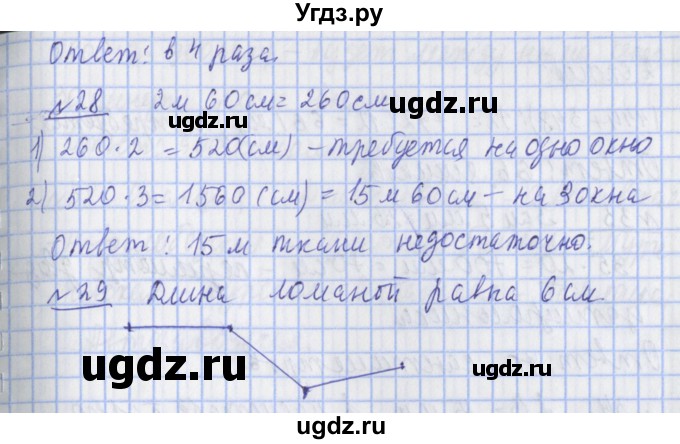 Угдз.ру
Ответ: в 4 раза.
№28 2м 60см = 260см
ugdz.ru
1) 260·2 = 520(см) – требуется на одно окно
2) 520·3 = 1560(см) = 15м 60см – на 3 окна
ugdz.ru
Ответ: 15м ткани недостаточно.
№29 Длина ломаной равна 6см.
ugdz.ru
ugdz.ru
ugdz.ru
ugdz.ru